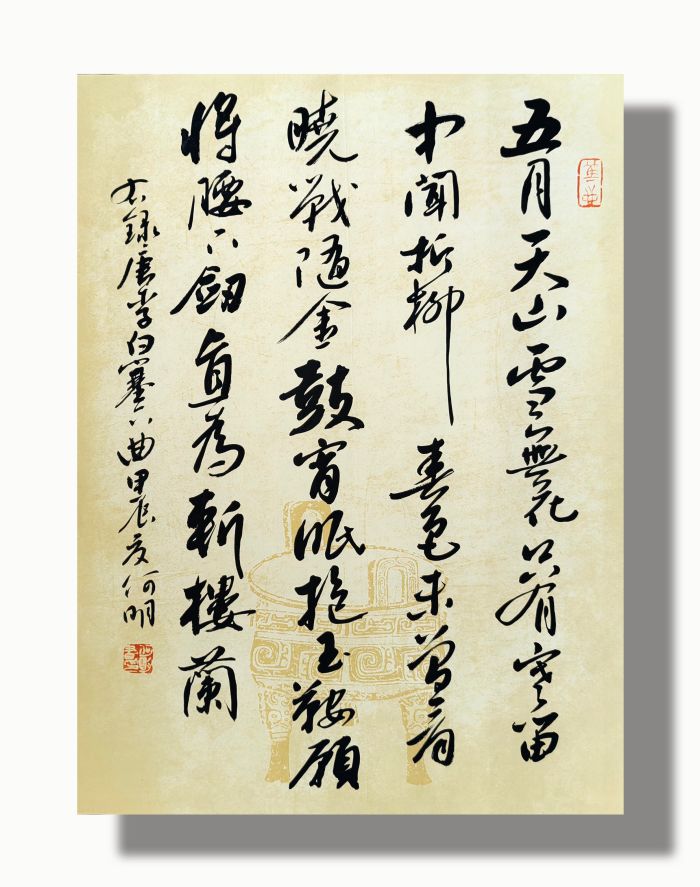 五月天山雪無花只有寒笛
中聞折柳春色未曾看
曉戰随金鼓宵眠抱玉鞍願
将腰下劒直為斬樓蘭
右録唐李白塞下曲甲辰夏何明